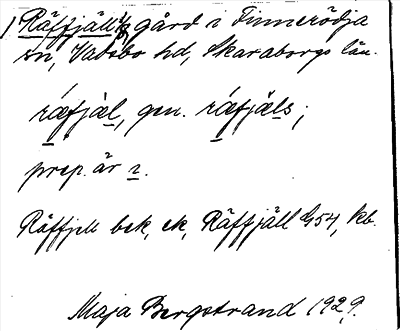 Räffjäll 1/8 gård i Finnerödja
sn, Vadsbo hd, Skaraborgs län.
ræfjæl, gen. ræfjæls;
prep. är i.
Räffjell bek, ek, Räffjäll G54, kb.
Maja Bergstrand 1929.